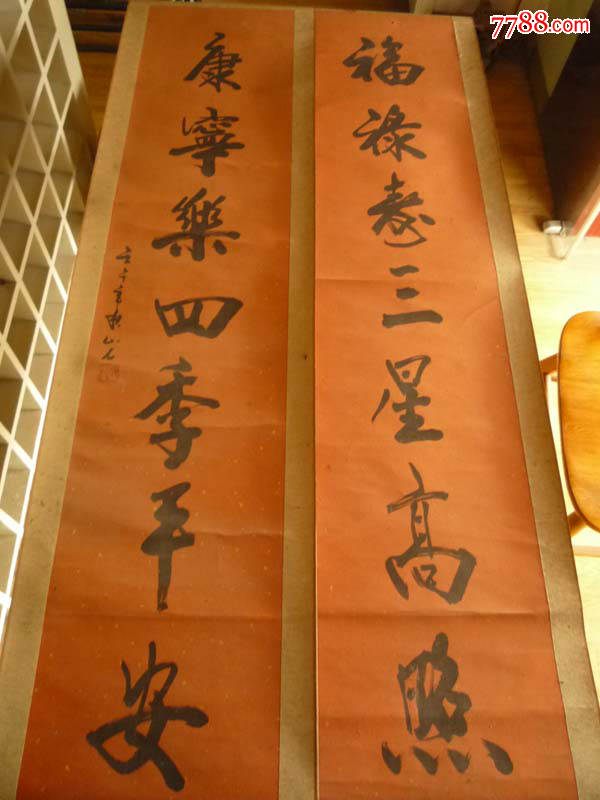 福祿壽三星高照
康寧樂四季平安
7788.com